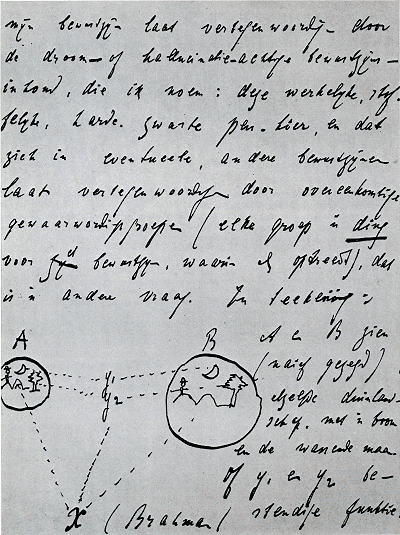 mijn bewustzijn laat vertegenwoordig- door
de droom- of hallucinatie-achtige bewustzijns-
inhoud, die ik noem: deze werkelyke, stof-
felyke, harde, zwarte pen-hier, en dat
zich in eventueele, andere bewustzijnen
laat vertegenwoordig- door overeenkomstige
gewaarwordingsgroepen (elke groep is ding
voor het bewustzijn, waarin ze optreedt), dat
is 'n andere vraag. In teekening:
A B
A en B zien
(naief gezegd)
'tzelfde duinland-
schap, met 'n boom
en de wassende maan
y₁
y₂
of y₁ en y₂ be-
X (Brahman) stendige functie